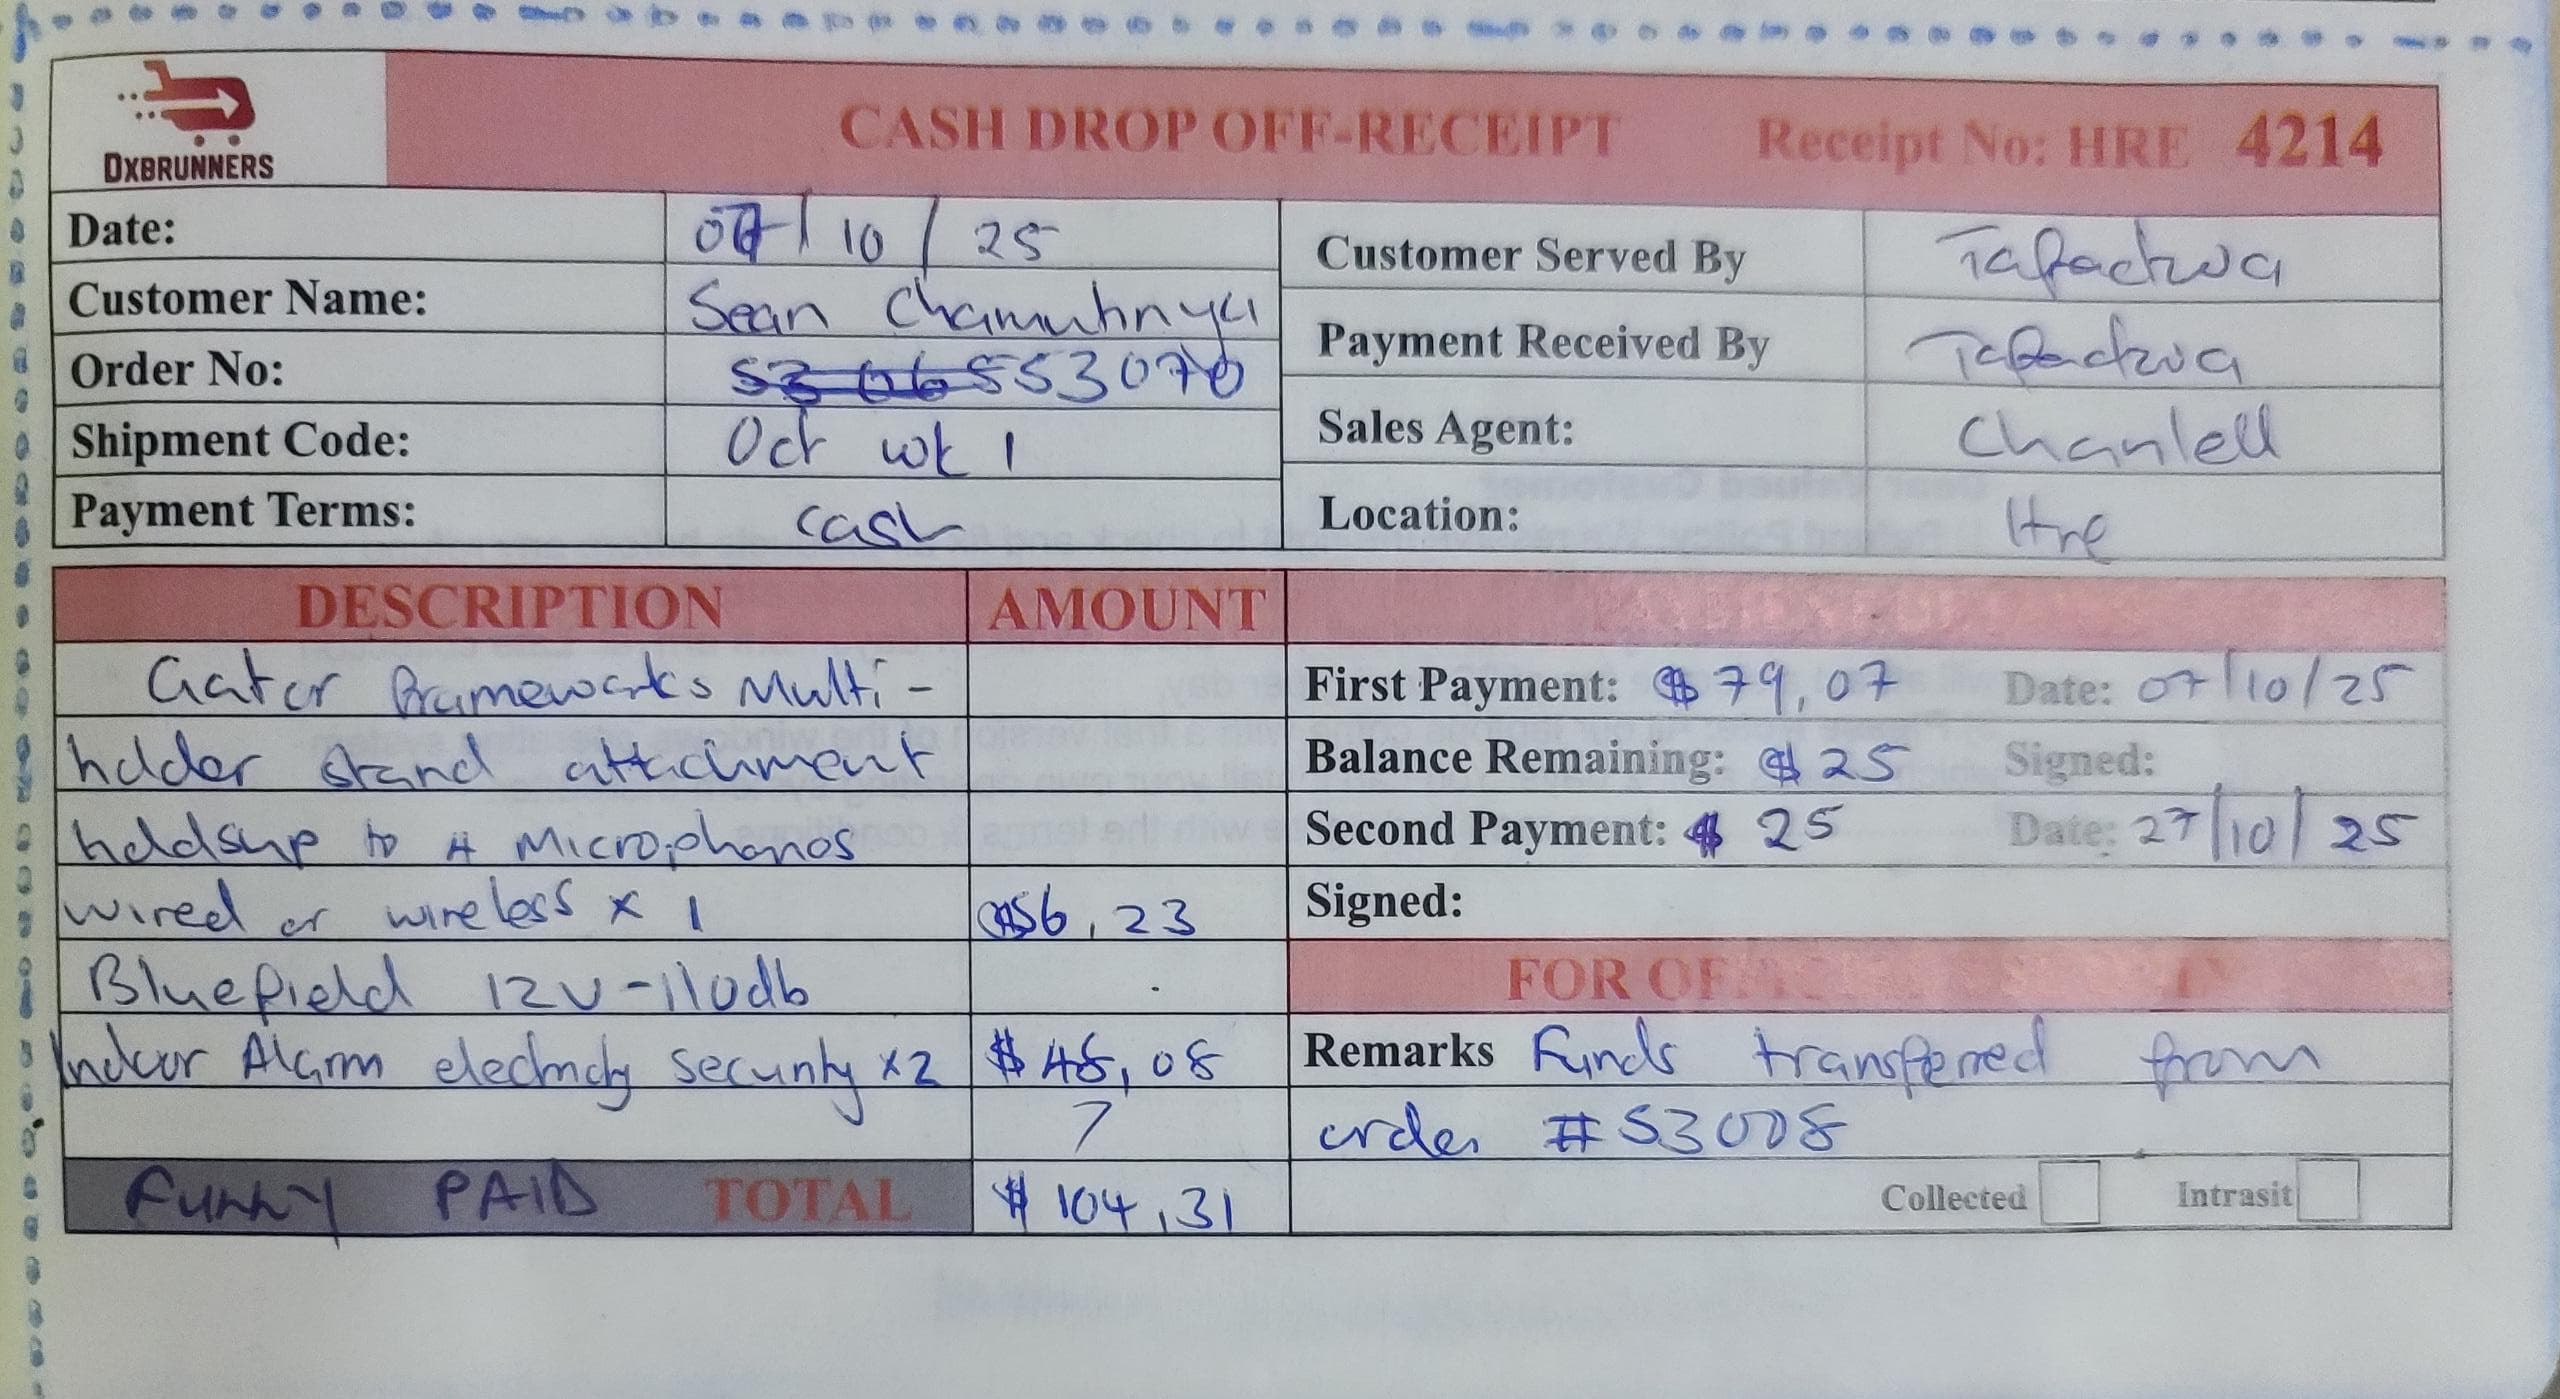 DXBRUNNERS
CASH DROP OFF-RECEIPT Receipt No: HRE 4214
Date: 07/10/25
Customer Name: Sean Chamuhnya
Order No: 553070
Shipment Code: Oct wk 1
Payment Terms: cash
Customer Served By Tafadzwa
Payment Received By Tafadzwa
Sales Agent: Chantell
Location: Hre
DESCRIPTION AMOUNT
Gator frameworks Multi-
holder stand attachment
holdsup to 4 Microphones
wired or wireless x 1 $56,23
Bluefield 12V-110db
Indoor Alarm electricity security x2 $48,08
FULLY PAID TOTAL $104,31
First Payment: $79,07 Date: 07/10/25
Balance Remaining: $25 Signed:
Second Payment: $25 Date: 27/10/25
Signed:
FOR OFFICE
Remarks Funds transferred from
order #53008
Collected Intrasit